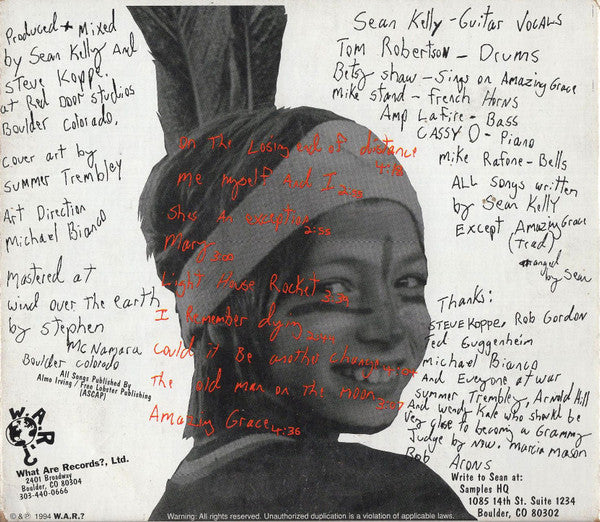 Produced + Mixed
by Sean Kelly And
Steve Koppe.
at Red Door studios
Boulder colorado.
cover art by
summer Trembley
Art Direction
Michael Bianco
mastered at
wind over The earth
by stephen
McNamara
Boulder colorado
All Songs Published By
Almo Irving / Free Lobster Publishing
(ASCAP)
W.A.R.?
What Are Records?, Ltd.
2401 Broadway
Boulder, CO 80304
303-440-0666
© & ℗ 1994 W.A.R.?
On The Losing end of distance 4:18
me myself And I
Shes An exception 2:55
Mary
Light House Rocket 3:34
I Remember dying
could it Be another change
The old man on The moon 3:07
Amazing Grace 4:36
Sean Kelly - Guitar VOCALS
Tom Robertson - Drums
Betsy shaw - Sings on Amazing Grace
Mike stand - french Horns
Amp LaFire - Bass
CASSY O - Piano
mike Rafone - Bells
ALL songs written
by Sean Kelly
Except Amazing Grace
(Trad)
arranged
by Sean
Thanks:
STEVE KOPPE, Rob Gordon
Ted Guggenheim
Michael Bianco
And Everyone at war
summer Trembley, Arnold Hill
And wendy Kale who should be
very close to becoming a Grammy
Judge by now. Marcia mason
Rob Arons
Write to Sean at:
Samples HQ
1085 14th St. Suite 1234
Boulder, CO 80302
Warning: All rights reserved. Unauthorized duplication is a violation of applicable laws.